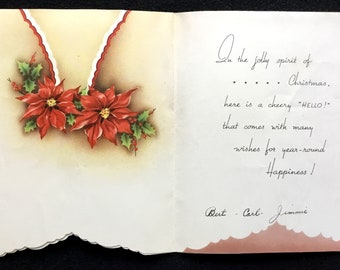 In the jolly spirit of
. . . . . Christmas,
here is a cheery "HELLO!"
that comes with many
wishes for year-round
Happiness!
Burt - Carl - Jimmie